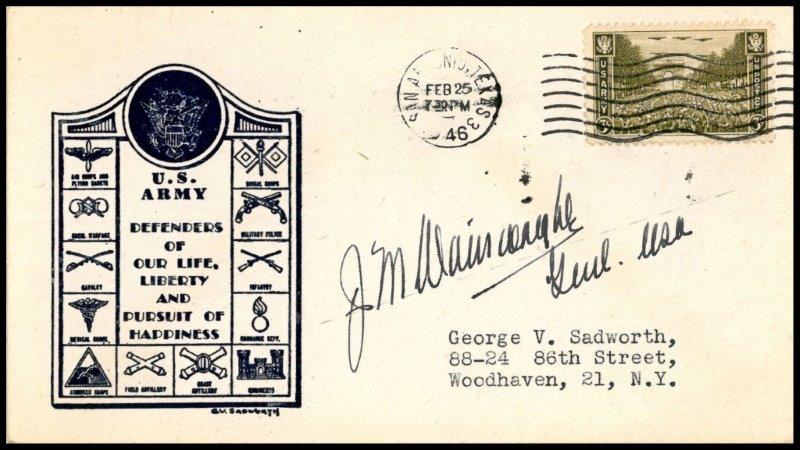 SAN ANTONIO, TEXAS 3
FEB 25
PM
46
U.S. ARMY
3
3
U.S.
ARMY
DEFENDERS
OF
OUR LIFE,
LIBERTY
AND
PURSUIT OF
HAPPINESS
AIR CORPS AND
FLYING CADETS
SIGNAL CORPS
MILITARY POLICE
CAVALRY
INFANTRY
MEDICAL CORPS
ORDNANCE DEPT.
ARMORED CORPS
FIELD ARTILLERY
COAST
ARTILLERY
ENGINEERS
G.V. SADWORTH
J M Wainwright
Genl. USA
George V. Sadworth,
88-24 86th Street,
Woodhaven, 21, N.Y.